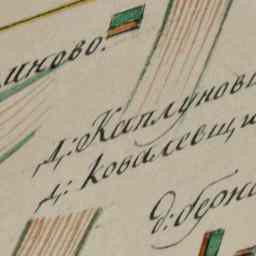 иново.
Д: Каплунови
д: Ковалевщи
д: берна